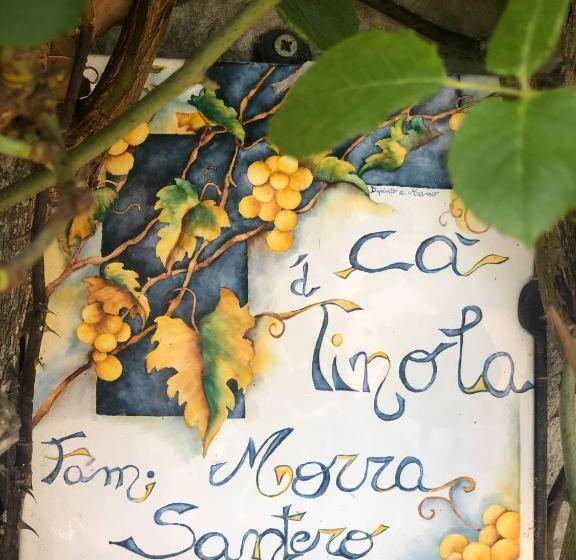 Dipinto a Mano
cà
à
Tinola
Fam: Morra
Santero